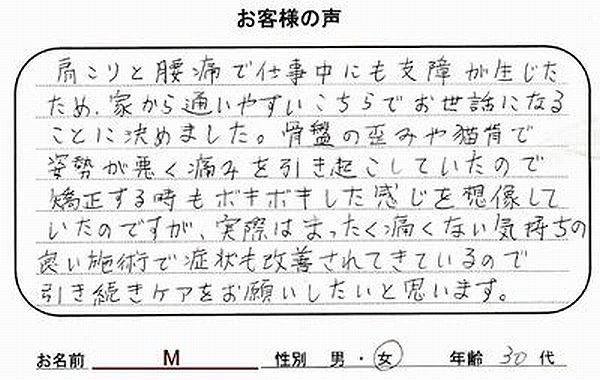 お客様の声
肩こりと腰痛で仕事中にも支障が生じた
ため、家から通いやすいこちらでお世話になる
ことに決めました。骨盤の歪みや猫背で
姿勢が悪く痛みを引き起こしていたので
矯正する時もボキボキした感じを想像して
いたのですが、実際はまったく痛くない気持ちの
良い施術で症状も改善されてきているので
引き続きケアをお願いしたいと思います。
お名前 M 性別 男・女 年齢 30代